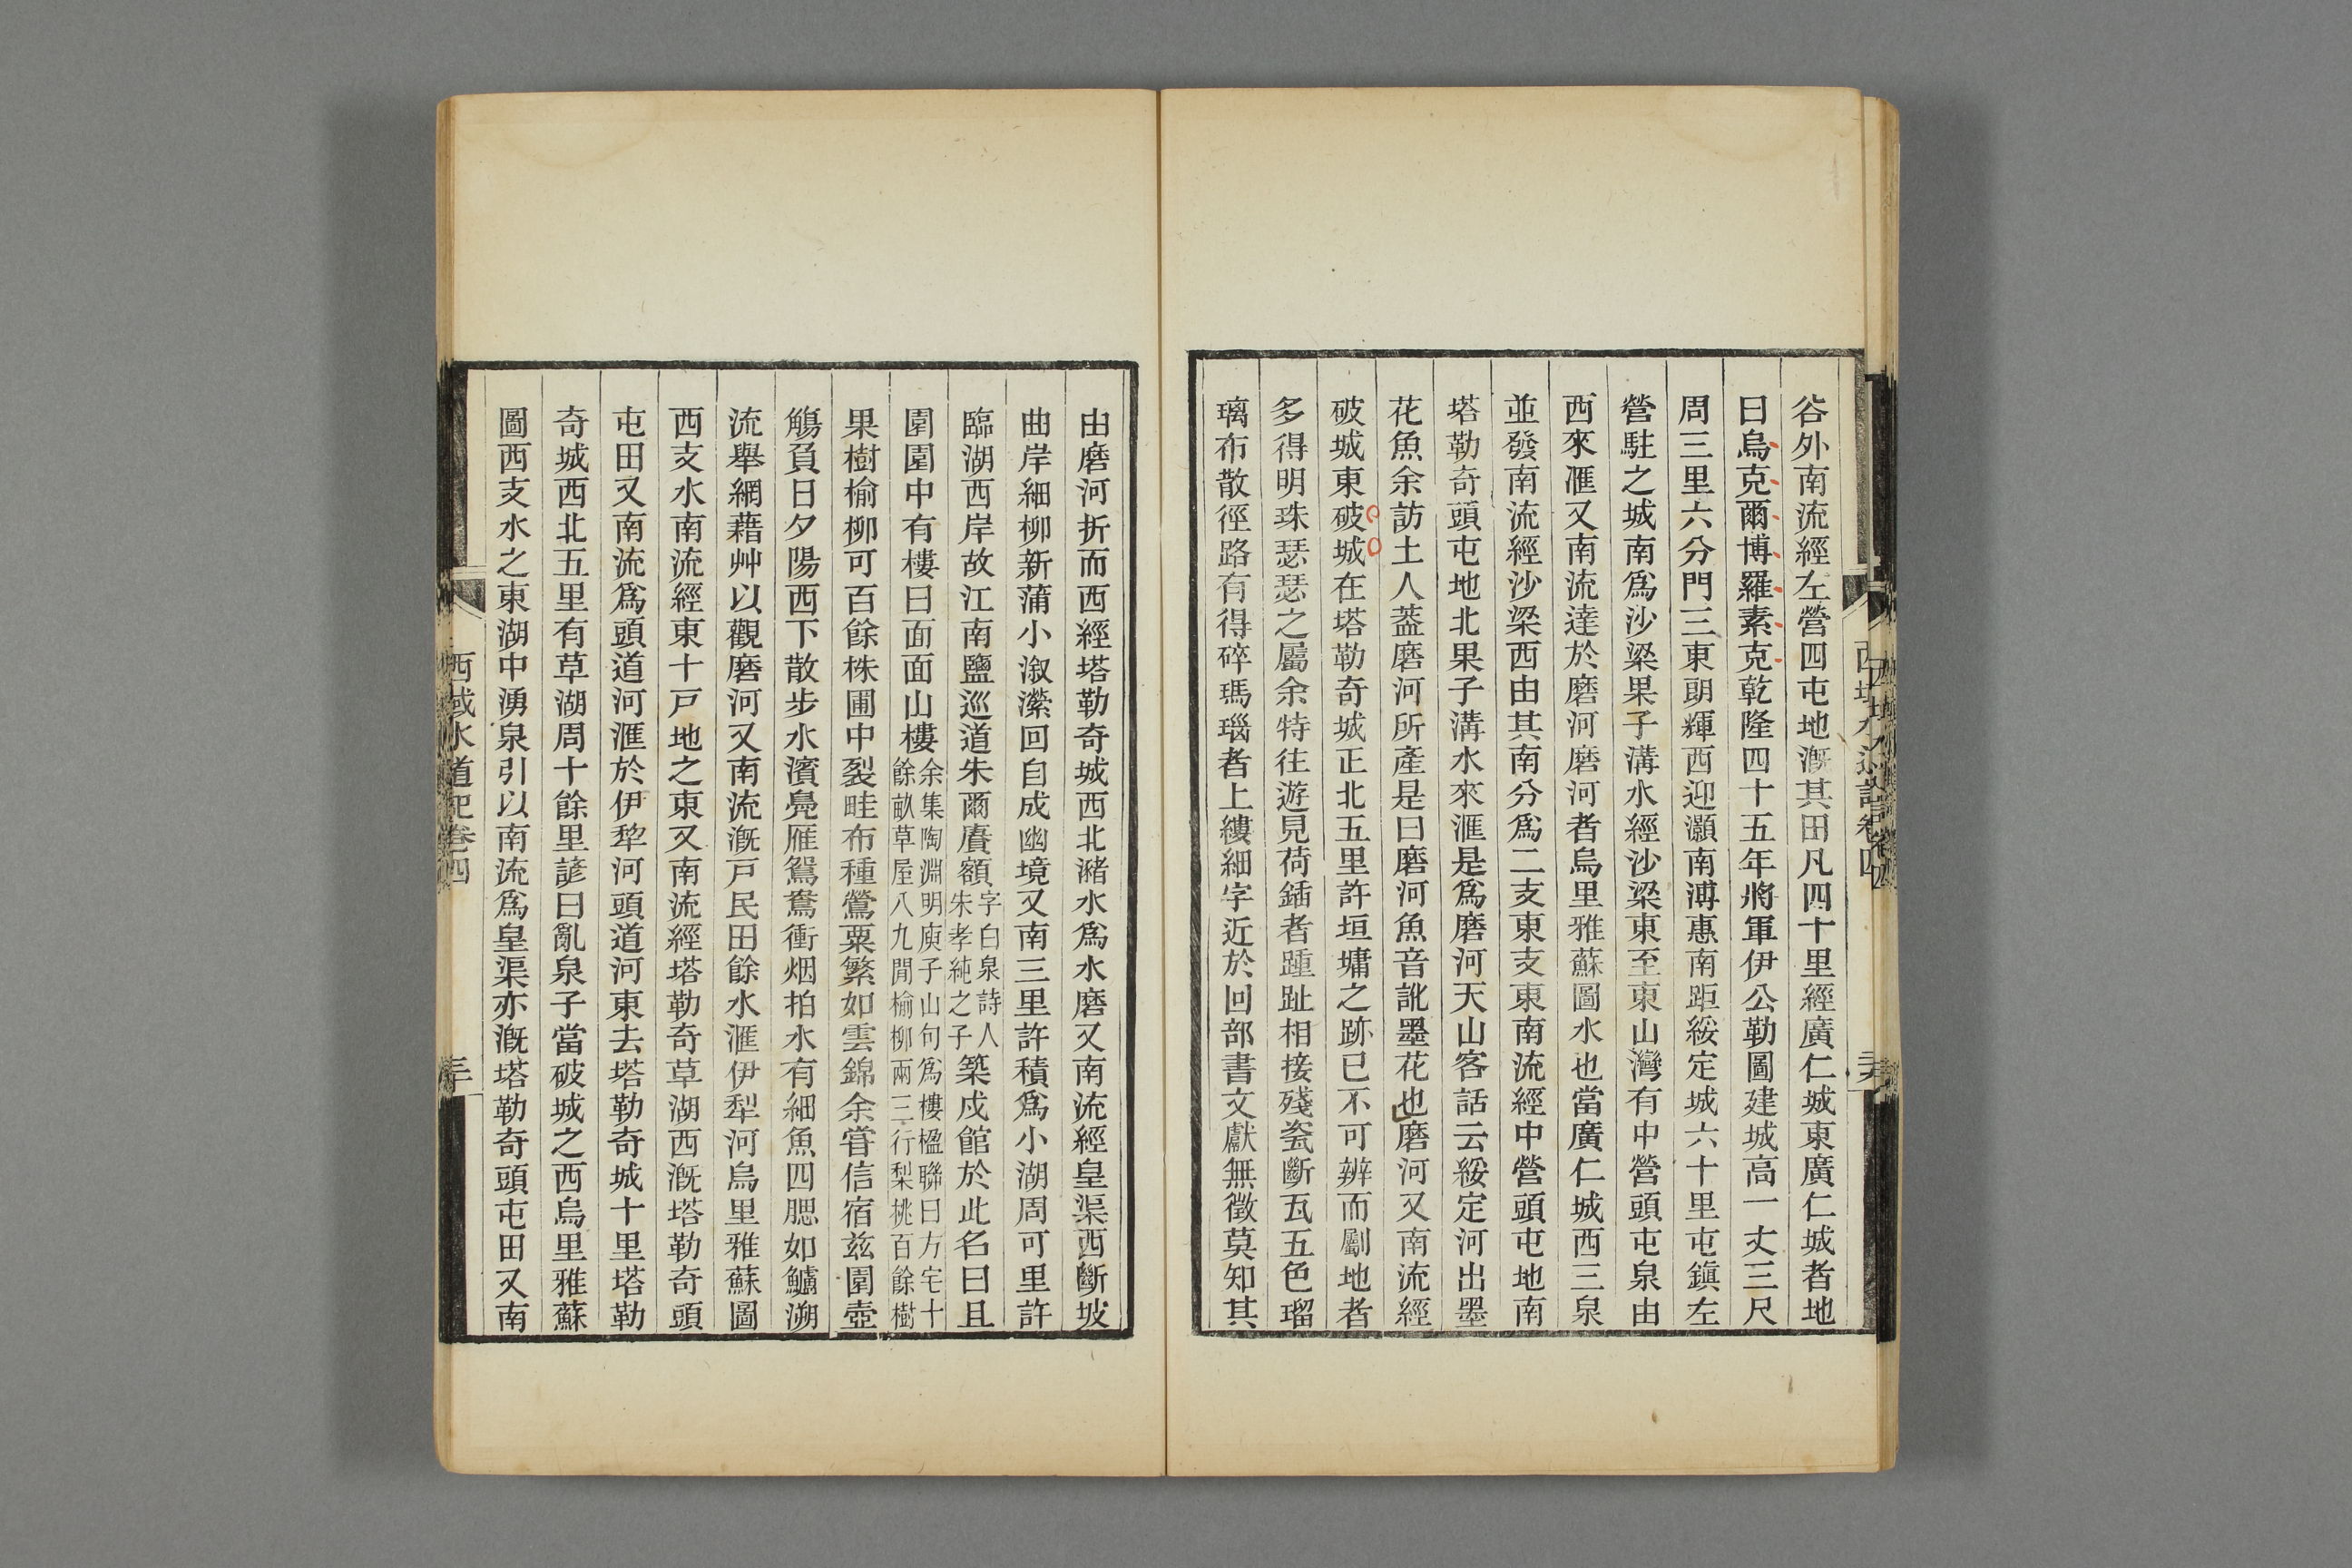 谷外南流經左營四屯地漑其田凡四十里經廣仁城東廣仁城者地
曰烏克爾博羅素克乾隆四十五年將軍伊公勒圖建城高一丈三尺
周三里六分門三東朗輝西迎灝南溥惠南距綏定城六十里屯鎭左
營駐之城南爲沙梁果子溝水經沙梁東至東山灣有中營頭屯泉由
西來滙又南流逹於磨河磨河者烏里雅蘇圖水也當廣仁城西三泉
並發南流經沙梁西由其南分爲二支東支東南流經中營頭屯地南
塔勒奇頭屯地北果子溝水來滙是爲磨河天山客話云綏定河出墨
花魚余訪土人葢磨河所產是曰磨河魚音訛墨花也磨河又南流經
破城東破城在塔勒奇城正北五里許垣墉之跡已不可辨而劚地者
多得明珠瑟瑟之屬余特往遊見荷鍤者踵趾相接殘甆斷瓦五色瑠
璃布散徑路有得碎瑪瑙者上縷細字近於回部書文獻無徵莫知其
由磨河折而西經塔勒奇城西北瀦水爲水磨又南流經皇渠西斷坡
曲岸細柳新蒲小溆瀠回自成幽境又南三里許積爲小湖周可里許
臨湖西岸故江南鹽巡道朱爾賡額字白泉詩人朱孝純之子築戍館於此名曰且
園園中有樓曰面面山樓余集陶淵明庾子山句爲樓楹聯曰方宅十餘畝草屋八九間榆柳兩三行梨桃百餘樹
果樹榆柳可百餘株圃中裂畦布種鶯粟繁如雲錦余嘗信宿玆園壺
觴負日夕陽西下散步水濱鳧雁鴛鴦衝烟拍水有細魚四腮如鱸溯
流舉網藉艸以觀磨河又南流漑戸民田餘水滙伊犁河烏里雅蘇圖
西支水南流經東十戸地之東又南流經塔勒奇草湖西漑塔勒奇頭
屯田又南流爲頭道河滙於伊犂河頭道河東去塔勒奇城十里塔勒
奇城西北五里有草湖周十餘里諺曰亂泉子當破城之西烏里雅蘇
圖西支水之東湖中湧泉引以南流爲皇渠亦漑塔勒奇頭屯田又南
西域水道記卷四
三十